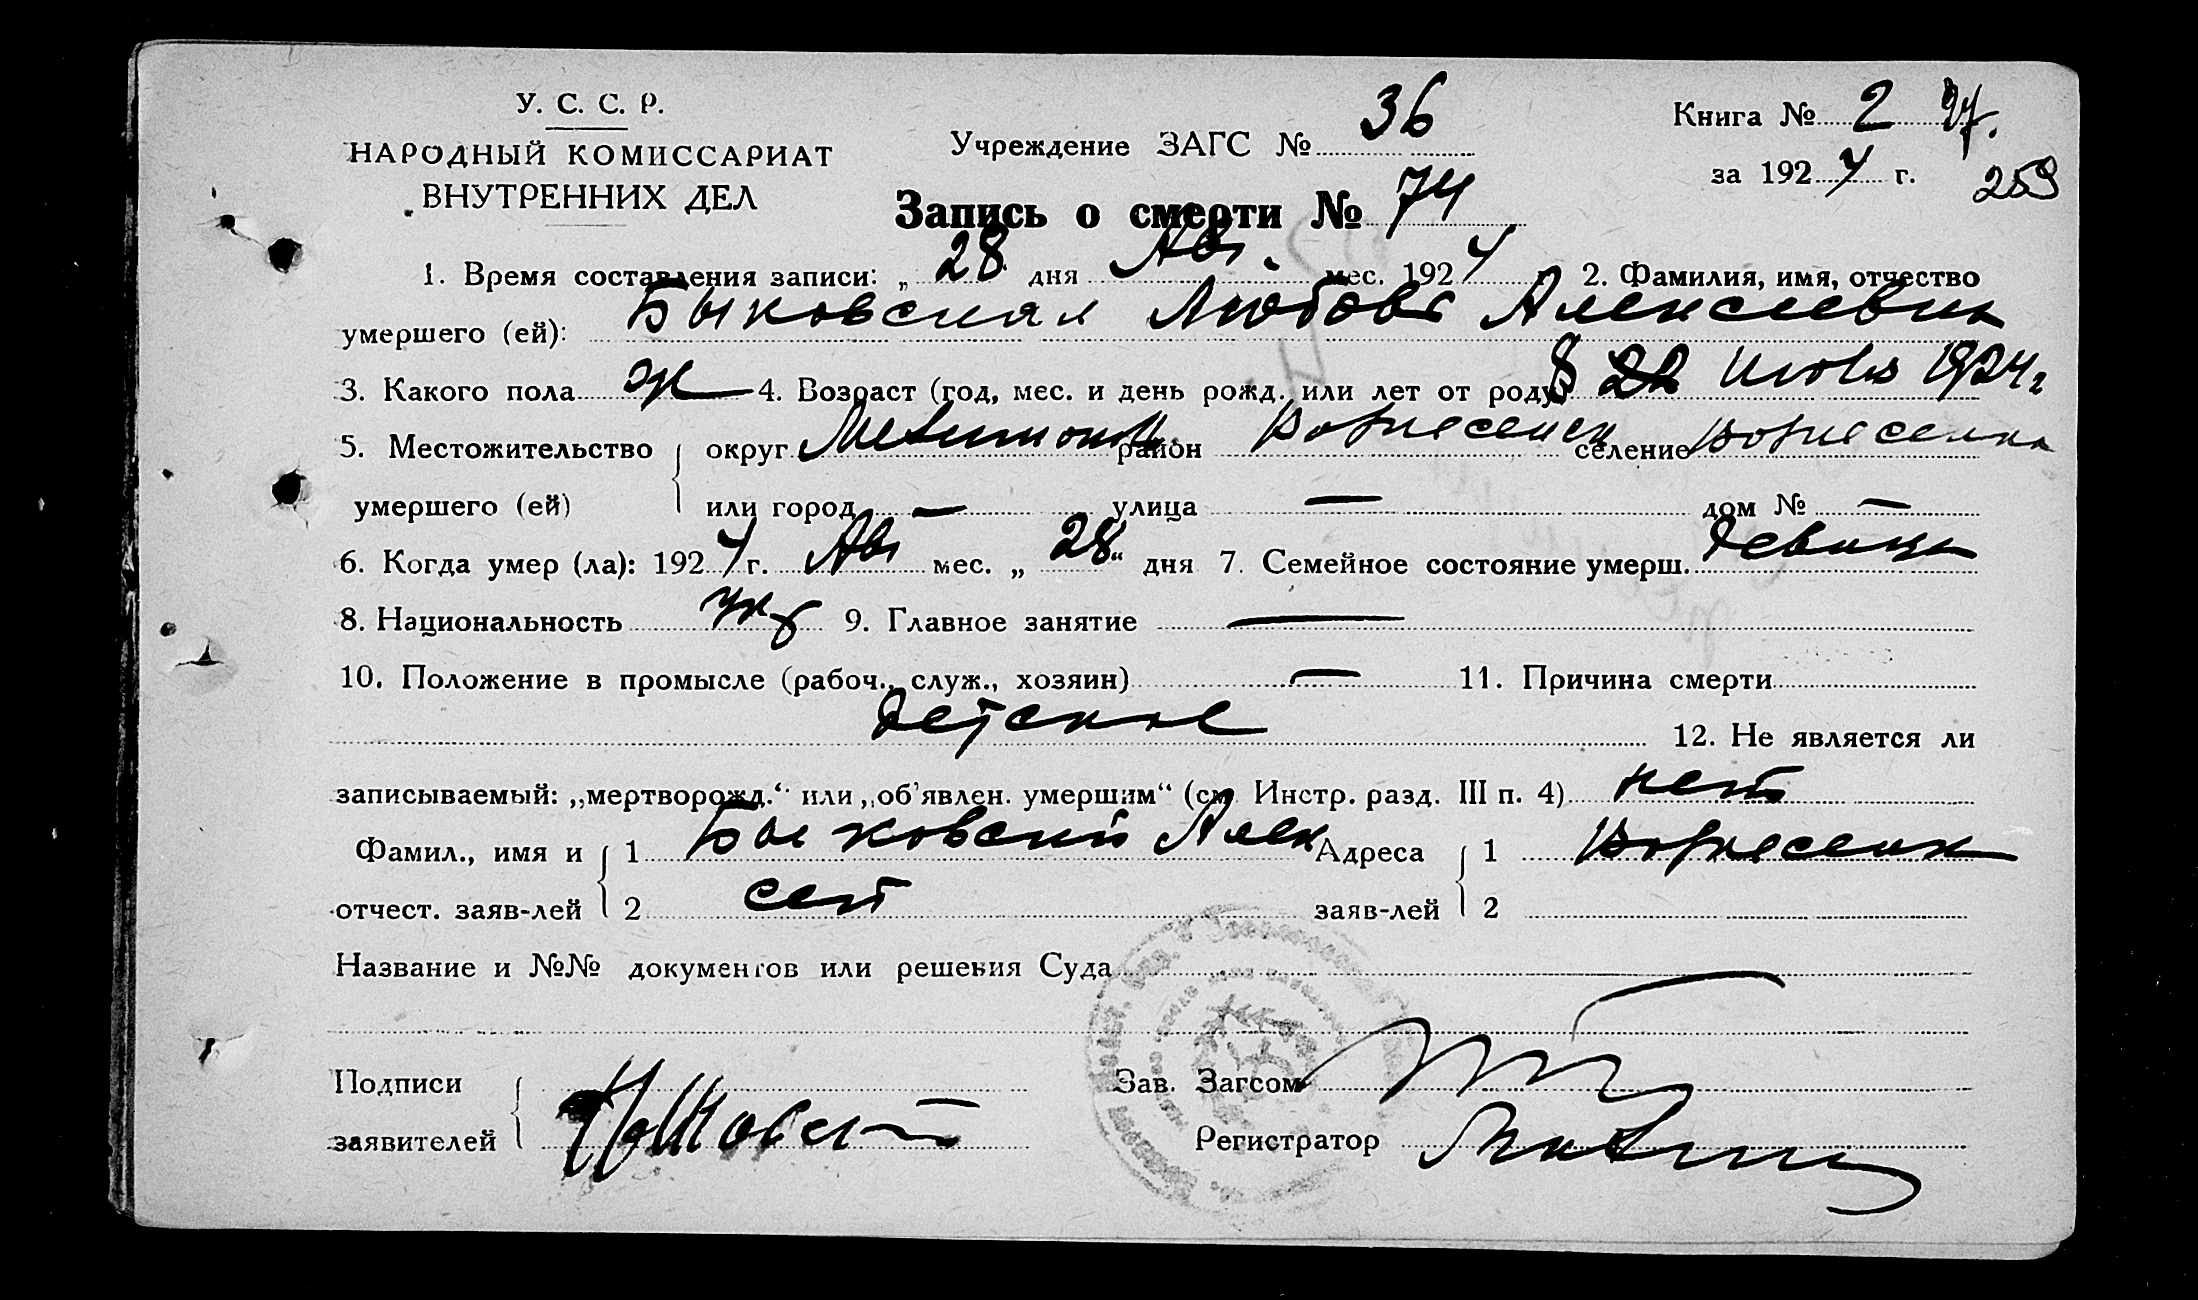 У. С. С. Р.
НАРОДНЫЙ КОМИССАРИАТ
ВНУТРЕННИХ ДЕЛ
Учреждение ЗАГС № 36
Книга № 2
за 1924 г. 259
Запись о смерти № 74
1. Время составления записи: „28 дня Авг. мес. 1924 2. Фамилия, имя, отчество
умершего (ей): Быковская Любовь Алексеевна
3. Какого пола ж 4. Возраст (год, мес. и день рожд. или лет от роду) 8 Июля 1924 г
5. Местожительство округ район Вознесенск селение Вознесенка
умершего (ей) или город — улица — дом № —
6. Когда умер (ла): 1924 г. Авг мес. „28“ дня 7. Семейное состояние умерш. девица
8. Национальность укр 9. Главное занятие —
10. Положение в промысле (рабоч., служ., хозяин) — 11. Причина смерти
детское
12. Не является ли
записываемый: „мертворожд.“ или „об'явлен. умершим“ (см. Инстр. разд. III п. 4) нет
Фамил., имя и 1 Быковский Алек Адреса 1 Вознесенк
отчест. заяв-лей 2 сей заяв-лей 2
Название и №№ документов или решения Суда
Подписи
заявителей
Зав. Загсом
Регистратор